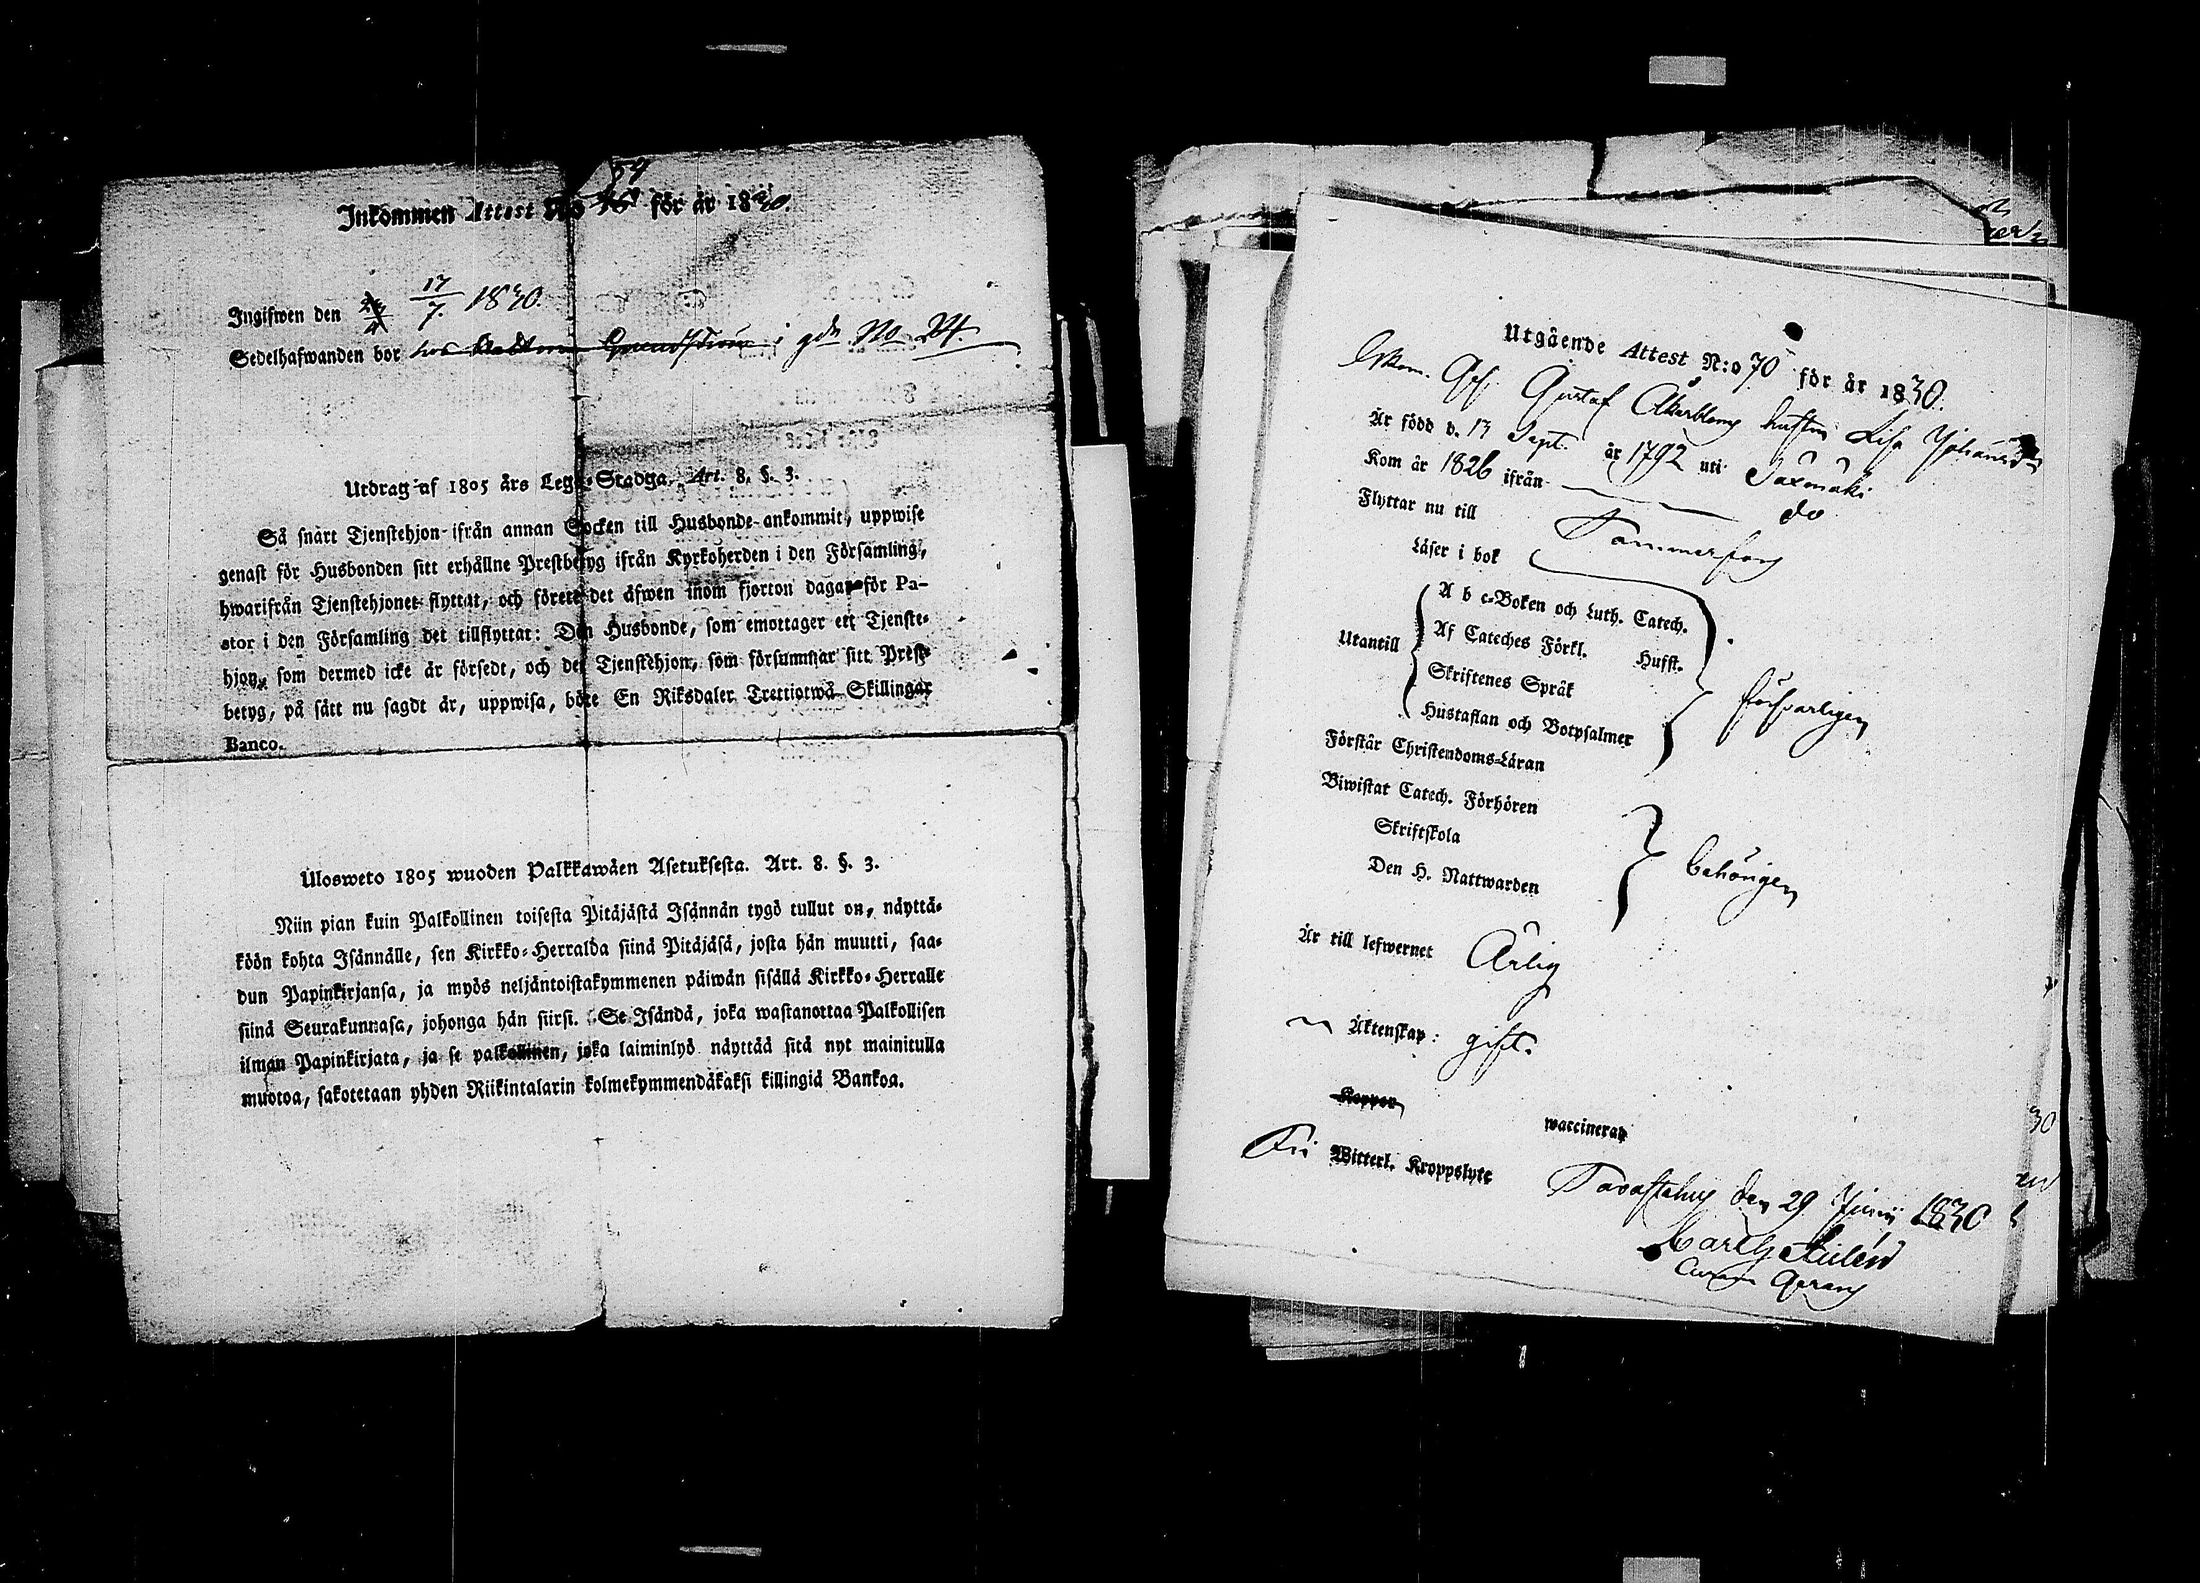 59
Inkommen Attest No för år 1830.
Ingifwen den 17/7. 1830.
Sedelhafwanden bor hos i gdn No 24.
Utdrag af 1805 års Lego-Stadga. Art. 8. §. 3.
Så snart Tjenstehjon ifrån annan Socken till Husbonde ankommit, uppwise
genast för Husbonden sitt erhållne Prestbetyg ifrån Kyrkoherden i den Församling,
hwarifrån Tjenstehjonet flyttat, och förete det äfwen inom fjorton dagar för Pa-
stor i den Församling det tillflyttat: Den Husbonde, som emottager ett Tjenste-
hjon, som dermed icke är försedt, och det Tjenstehjon, som försummar sitt Prest-
betyg, på sätt nu sagdt är, uppwisa, böte En Riksdaler Trettiotwå Skillingar
Banco.
Ulosweto 1805 wuoden Palkkawäen Asetuksesta. Art. 8. §. 3.
Niin pian kuin Palkollinen toisesta Pitäjästä Isännän tygö tullut on, näyttä-
köön kohta Isännälle, sen Kirkko-Herralda siinä Pitäjäsä, josta hän muutti, saa-
dun Papinkirjansa, ja myös neljäntoistakymmenen päiwän sisällä Kirkko-Herralle
siinä Seurakunnasa, johonga hän siirsi. Se Isändä, joka wastanottaa Palkollisen
ilman Papinkirjata, ja se palkollinen, joka laiminlyö näyttää sitä nyt mainitulla
muotoa, sakotetaan yhden Riikintalarin kolmekymmendäkaksi killingiä Bankoa.
Utgående Attest N:o 70 för år 1830.
Gustaf Åkerbloms hustru Lisa
Är född d. 13 Sept. år 1792 uti Sääxmäki
Kom år 1826 ifrån do
Flyttar nu till Tammerfors
Läser i bok
Utantill
A b c-Boken och Luth. Catech.
Af Cateches Förkl. Husst.
Skriftenes Språk
Hustaflan och Botpsalmer
försvarligen
Förstår Christendoms-Läran
Biwistat Catech. Förhören
Skriftskola
Den H. Nattwarden
behörigen
Är till lefwernet Ärlig
Äktenskap: gift.
Koppor
waccinerad
Fri Witterl. Kroppslyte
Tavastehus den 29 Junii 1830
Carl